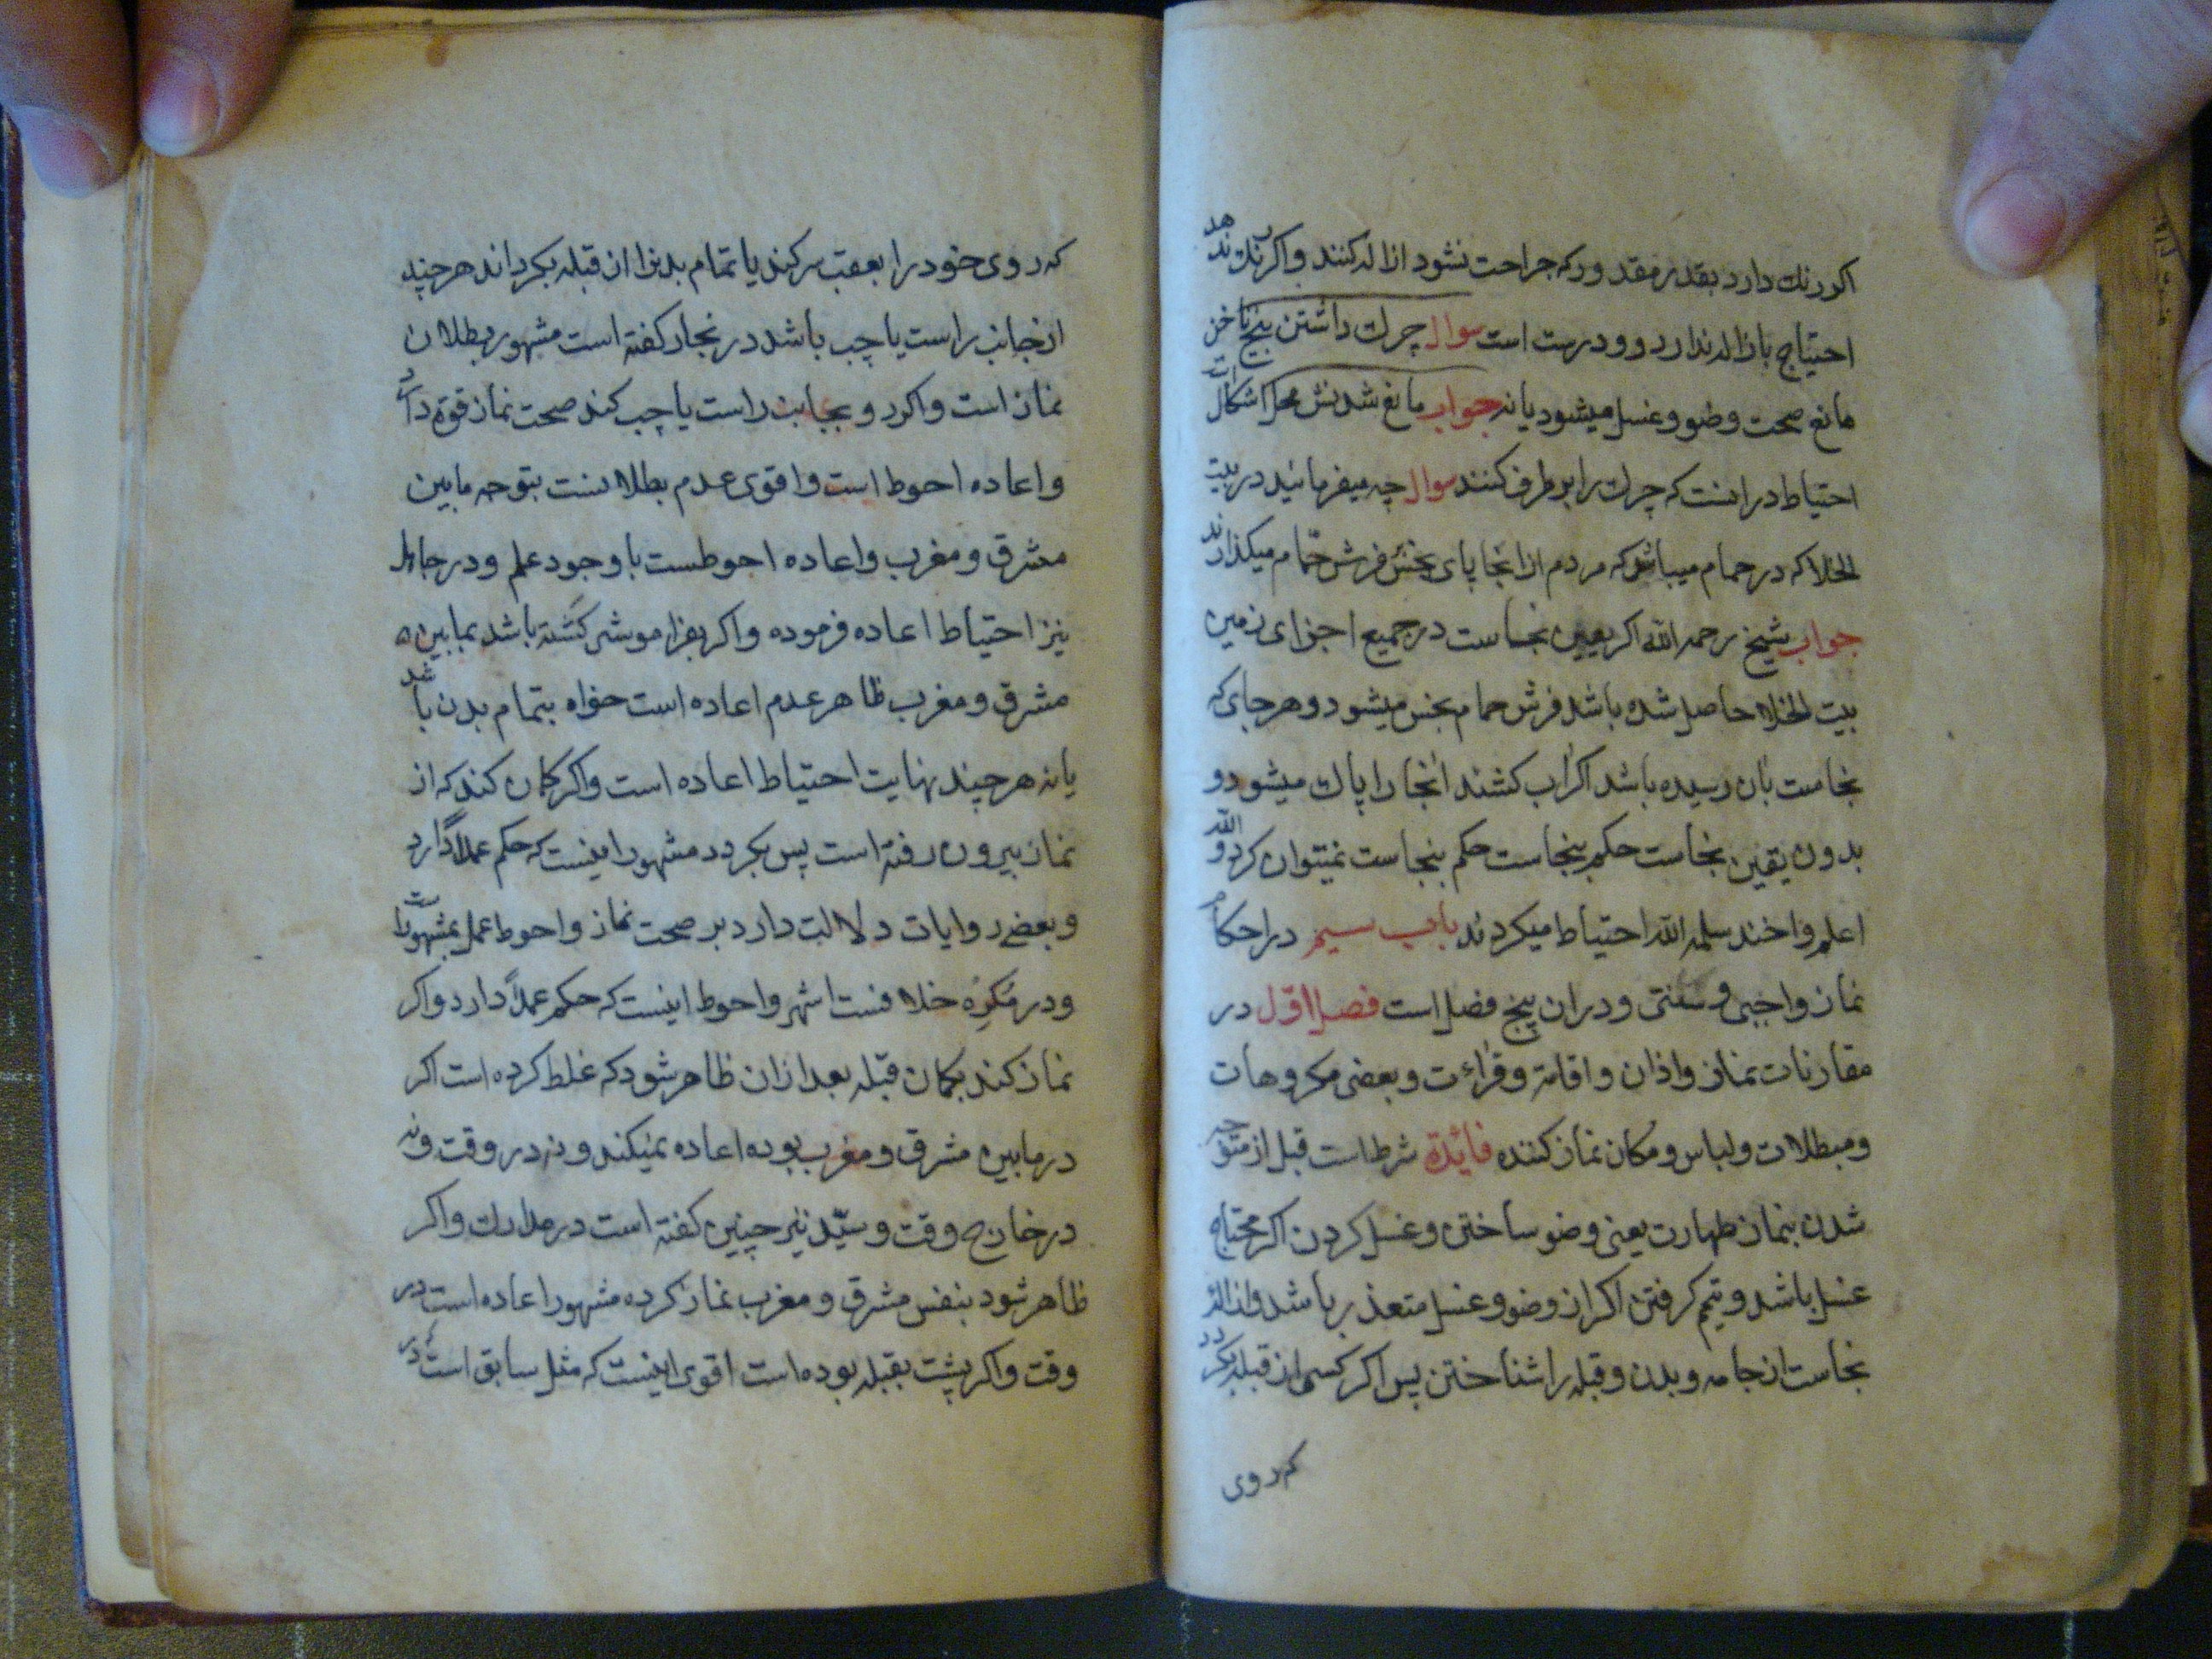 اکر رنك دارد بقدر مقدور که جراحت نشود ازاله کنند و اکر رنك ندهد
احتیاج بازاله ندارد و درست است سوال چرك داشتن بنج ناخن
مانع صحت وضو و غسل میشود یا نه جواب مانع شدنش محل اشکال است
احتیاط در انست که چرك را بر طرف کنند سوال چه میفرمائید در بیت
الخلا که در حمام میباشد که مردم از انجا پای نجس فرش حمام میکذارند
جواب شیخ رحمه الله اکر یقین نجاست در جمیع اجزای زمین
بیت الخلا حاصل شده باشد فرش حمام نجس میشود و هر جای که
نجاست بان رسیده باشد اکر اب کشند انجا را پاك میشود و
بدون یقین نجاست حکم بنجاست حکم بنجاست نمیتوان کرد و الله
اعلم واخند سلمه الله احتیاط میکردند باب سیم در احکام
نماز واجبی و سنتی و دران پنج فصل است فصل اول در
مقارنات نماز و اذان و اقامة و قراءت و بعضی مکروهات
ومبطلات و لباس و مکان نماز کننده فائدة شرط است قبل از متوجه
شدن بنماز طهارت یعنی وضو ساختن و غسل کردن اکر محتاج
غسل باشد و تیمم کرفتن اکر از وضو و غسل متعذر باشد و ازالهٔ
نجاست از جامه و بدن و قبله را شناختن پس اکر کسی از قبله بکردد
که روی
که روی خود را بعقب سر کند یا تمام بدنرا از قبله بکرداند هر چند
از جانب راست یا چپ باشد در بحار کفته است مشهور بطلان
نماز است و اکر رو بجانب راست یا چپ کند صحت نماز قوة دارد
و اعاده احوط است و اقوی عدم بطلانست بتوجه مابین
مشرق و مغرب و اعاده احوطست با وجود علم و در جاهل
نیز احتیاط اعاده فرموده و اکر بفراموشی کشته باشد بمابین
مشرق و مغرب ظاهر عدم اعاده است خواه بتمام بدن باشد
یا نه هر چند نهایت احتیاط اعاده است و اکر کمان کند که از
نماز بیرون رفته است پس بکردد مشهور اینست که حکم عمداً دارد
و بعضی روایات دلالت دارد بر صحت نماز و احوط عمل بمشهورست
و در مکره خلافست اشهر و احوط اینست که حکم عمداً دارد و اکر
نماز کند بکمان قبله بعد از ان ظاهر شود که غلط کرده است اکر
در مابین مشرق و مغرب بوده اعاده نمیکند و نه در وقت و نه
در خارج وقت و سیّد نیز چنین کفته است در مدارك و اکر
ظاهر شود بنفس مشرق و مغرب نماز کرده مشهور اعاده است در
وقت و اکر پشت بقبله بوده است اقوی اینست که مثل سابق است در